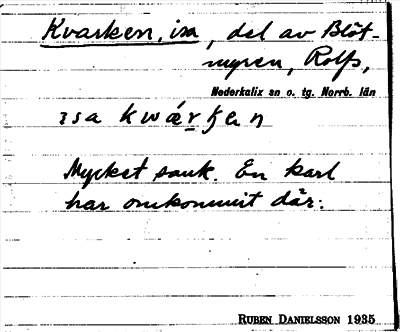 Kvarken, isa, del av Blöt-
myren, Rolfs,
Nederkalix sn o. tg. Norrb. län
ɪsa kwárʗen
Mycket sank. En karl
har omkommit där.
RUBEN DANIELSSON 1935